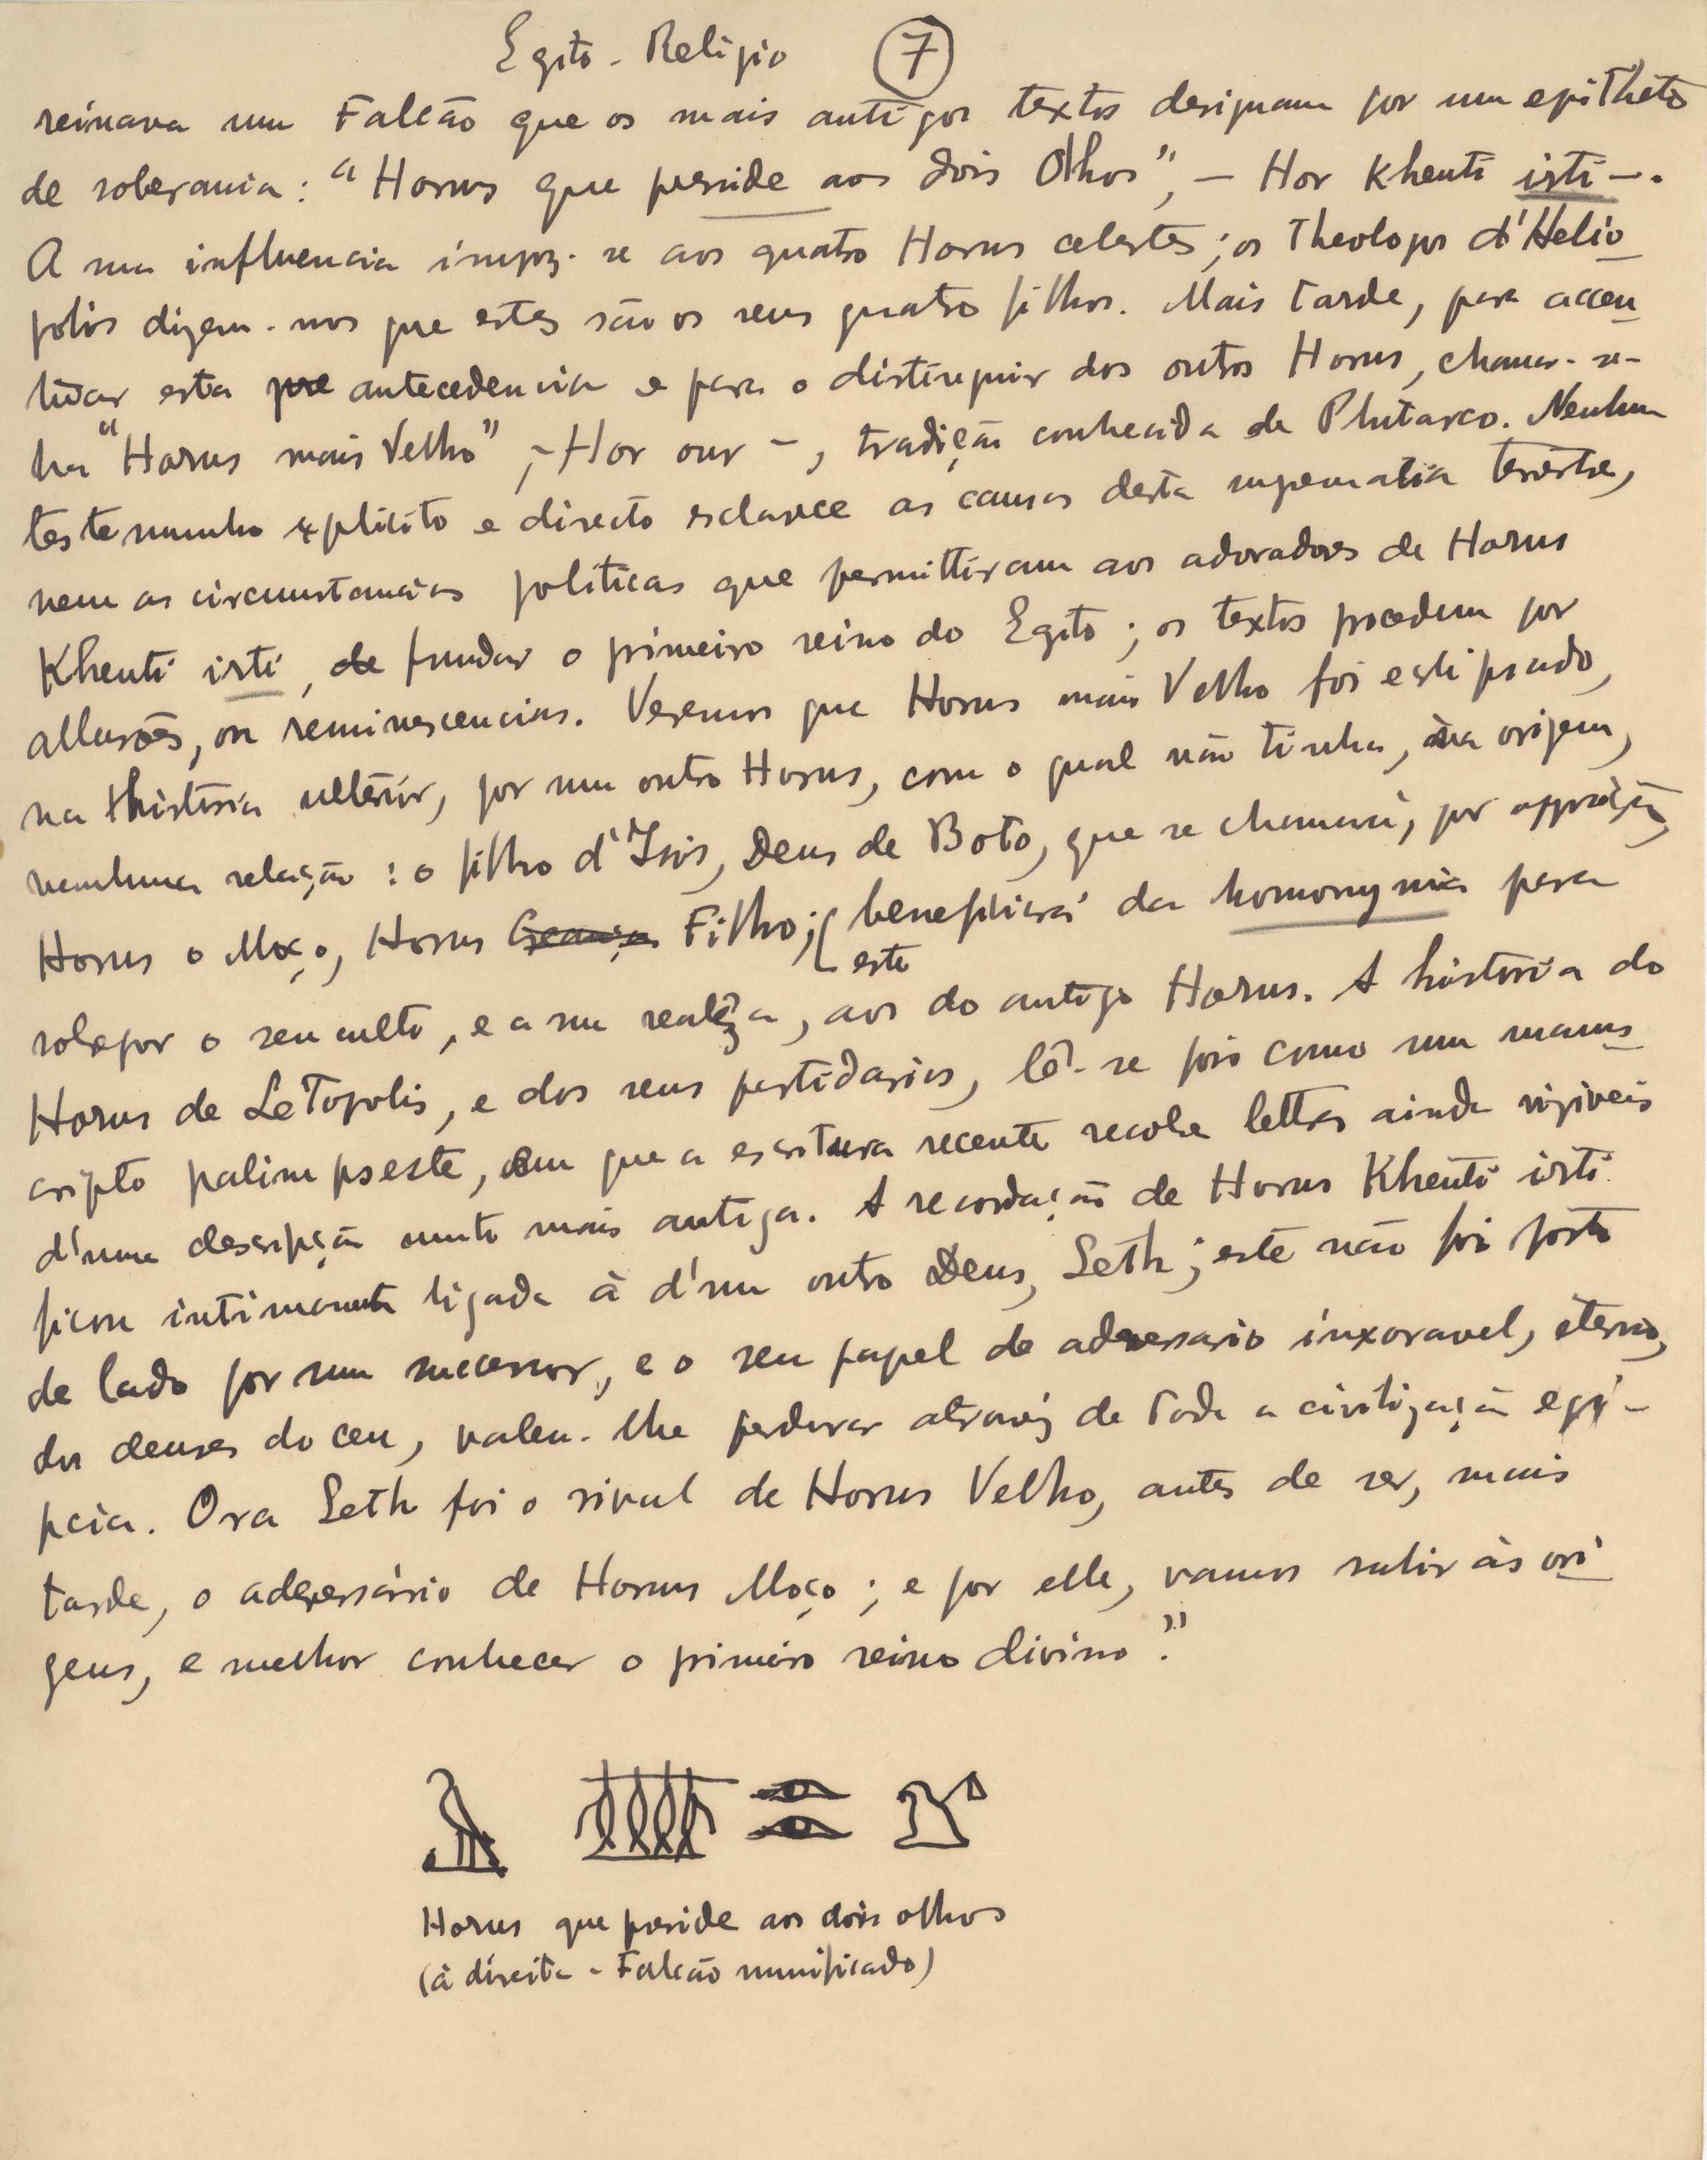 Egito - Religio 7
reinava um Falcão que os mais antigos textos designam por um epitheto
de soberania: "Horus que preside aos dois Olhos", — Hor Khenti irti —.
A sua influencia impoz-se aos quatro Horus celestes; os Theologos d'Helio
polis dizem-nos que estes são os seus quatro filhos. Mais tarde, para accen
tuar esta pre antecedencia e para o distinguir dos outros Horus, chamar-se-
ha "Horus mais Velho", - Hor our -, tradição conhecida de Plutarco. Nenhum
testemunho explicito e directo esclarece as causas desta supremacia terrestre,
nem as circumstancias politicas que permittiram aos adoradores de Horus
Khenti irti, de fundar o primeiro reino do Egito; os textos procedem por
allusões, ou reminescencias. Veremos que Horus mais Velho foi eclipsado,
na Historia ulterior, por um outro Horus, com o qual não tinha, na origem,
nenhuma relação: o filho d'Isis, Deus de Boto, que se chamará, por opposição,
Horus o Moço, Horus Creança Filho; beneficiará da homonymia para
este
sobrepor o seu culto, e a sua realeza, aos do antigo Horus. A historia do
Horus de Letopolis, e dos seus partidarios, lê-se pois como um manus
cripto palimpseste, em que a escritura recente recobre lettras ainda visiveis
d'uma descripção muito mais antiga. A recordação de Horus Khenti irti
ficou intimamente ligada à d'um outro Deus, Seth; este não foi posto
de lado por um successor, e o seu papel de adversario inexoravel, eterno,
dos deuses do ceu, valeu-lhe perdurar atravez de toda a civilização egy-
pcia. Ora Seth foi o rival de Horus Velho, antes de ser, mais
tarde, o adversário de Horus Moço; e por elle, vamos subir às ori
gens, e melhor conhecer o primeiro reino divino."
Horus que preside aos dois olhos
(à direita - Falcão mumificado)